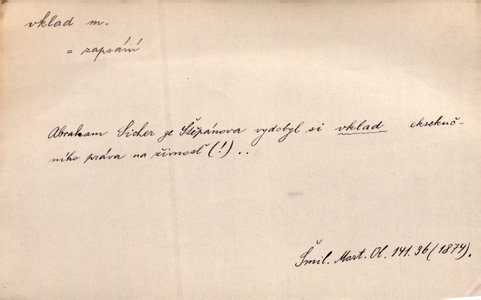 vklad m.
= zapsání
Abraham Sicher ze Štěpánova vydobyl si vklad eksekuč-
ního práva na živnosť (!) ..
Šmil. Mart. Ol. 141.36 (1874).